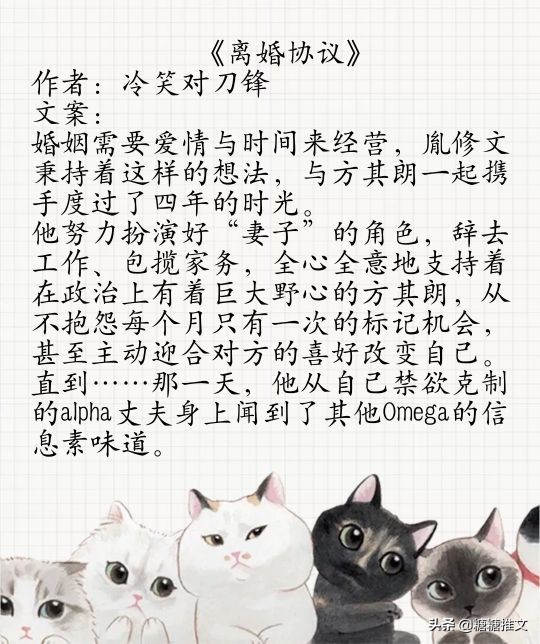 《离婚协议》
作者：冷笑对刀锋
文案：
婚姻需要爱情与时间来经营，胤修文
秉持着这样的想法，与方其朗一起携
手度过了四年的时光。
他努力扮演好“妻子”的角色，辞去
工作、包揽家务，全心全意地支持着
在政治上有着巨大野心的方其朗，从
不抱怨每个月只有一次的标记机会，
甚至主动迎合对方的喜好改变自己。
直到……那一天，他从自己禁欲克制
的alpha丈夫身上闻到了其他Omega的信
息素味道。
头条 @糖糖推文